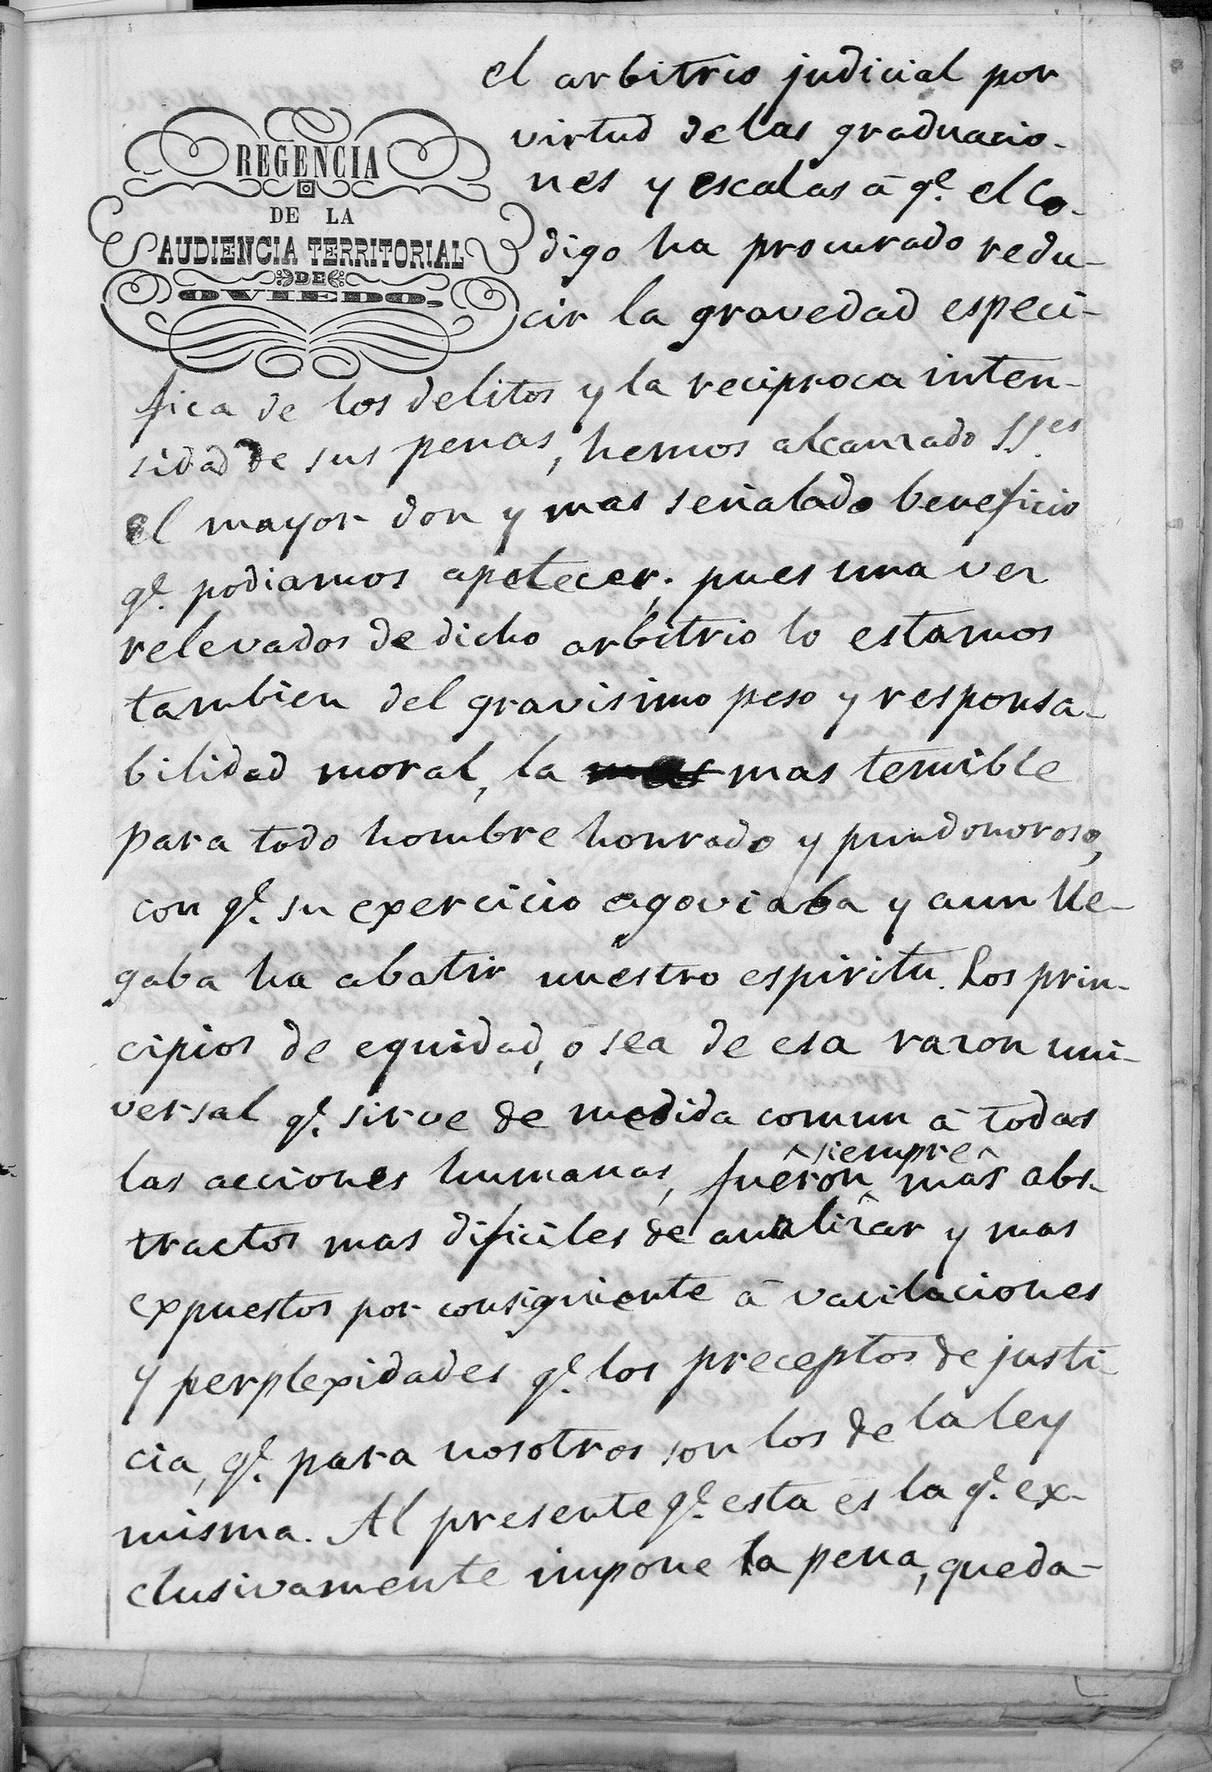 REGENCIA
DE LA
AUDIENCIA TERRITORIAL
DE
OVIEDO.
el arbitrio judicial por
virtud de las graduacio-
nes y escalas á qe. el Co-
digo ha procurado redu-
cir la gravedad especi-
fica de los delitos y la reciproca inten-
sidad de sus penas, hemos alcanzado SSes.
el mayor don y mas señalado beneficio
qe. podiamos apetecer; pues una vez
relevados de dicho arbitrio lo estamos
tambien del gravisimo peso y responsa-
bilidad moral, la mas mas temible
para todo hombre honrado y pundonoroso,
con qe. su exercicio agoviaba y aun lle-
gaba ha abatir nuestro espiritu. Los prin-
cipios de equidad, ó sea de esa razon uni-
versal qe. sirve de medida comun á todas
las acciones humanas, fueron siempre mas abs-
tractos mas dificiles de analizar y mas
expuestos por consiguiente á vacilaciones
y perplexidades qe. los preceptos de justi
cia, qe. para nosotros son los de la ley
misma. Al presente qe. esta es la qe. ex-
clusivamente impone la pena, queda-